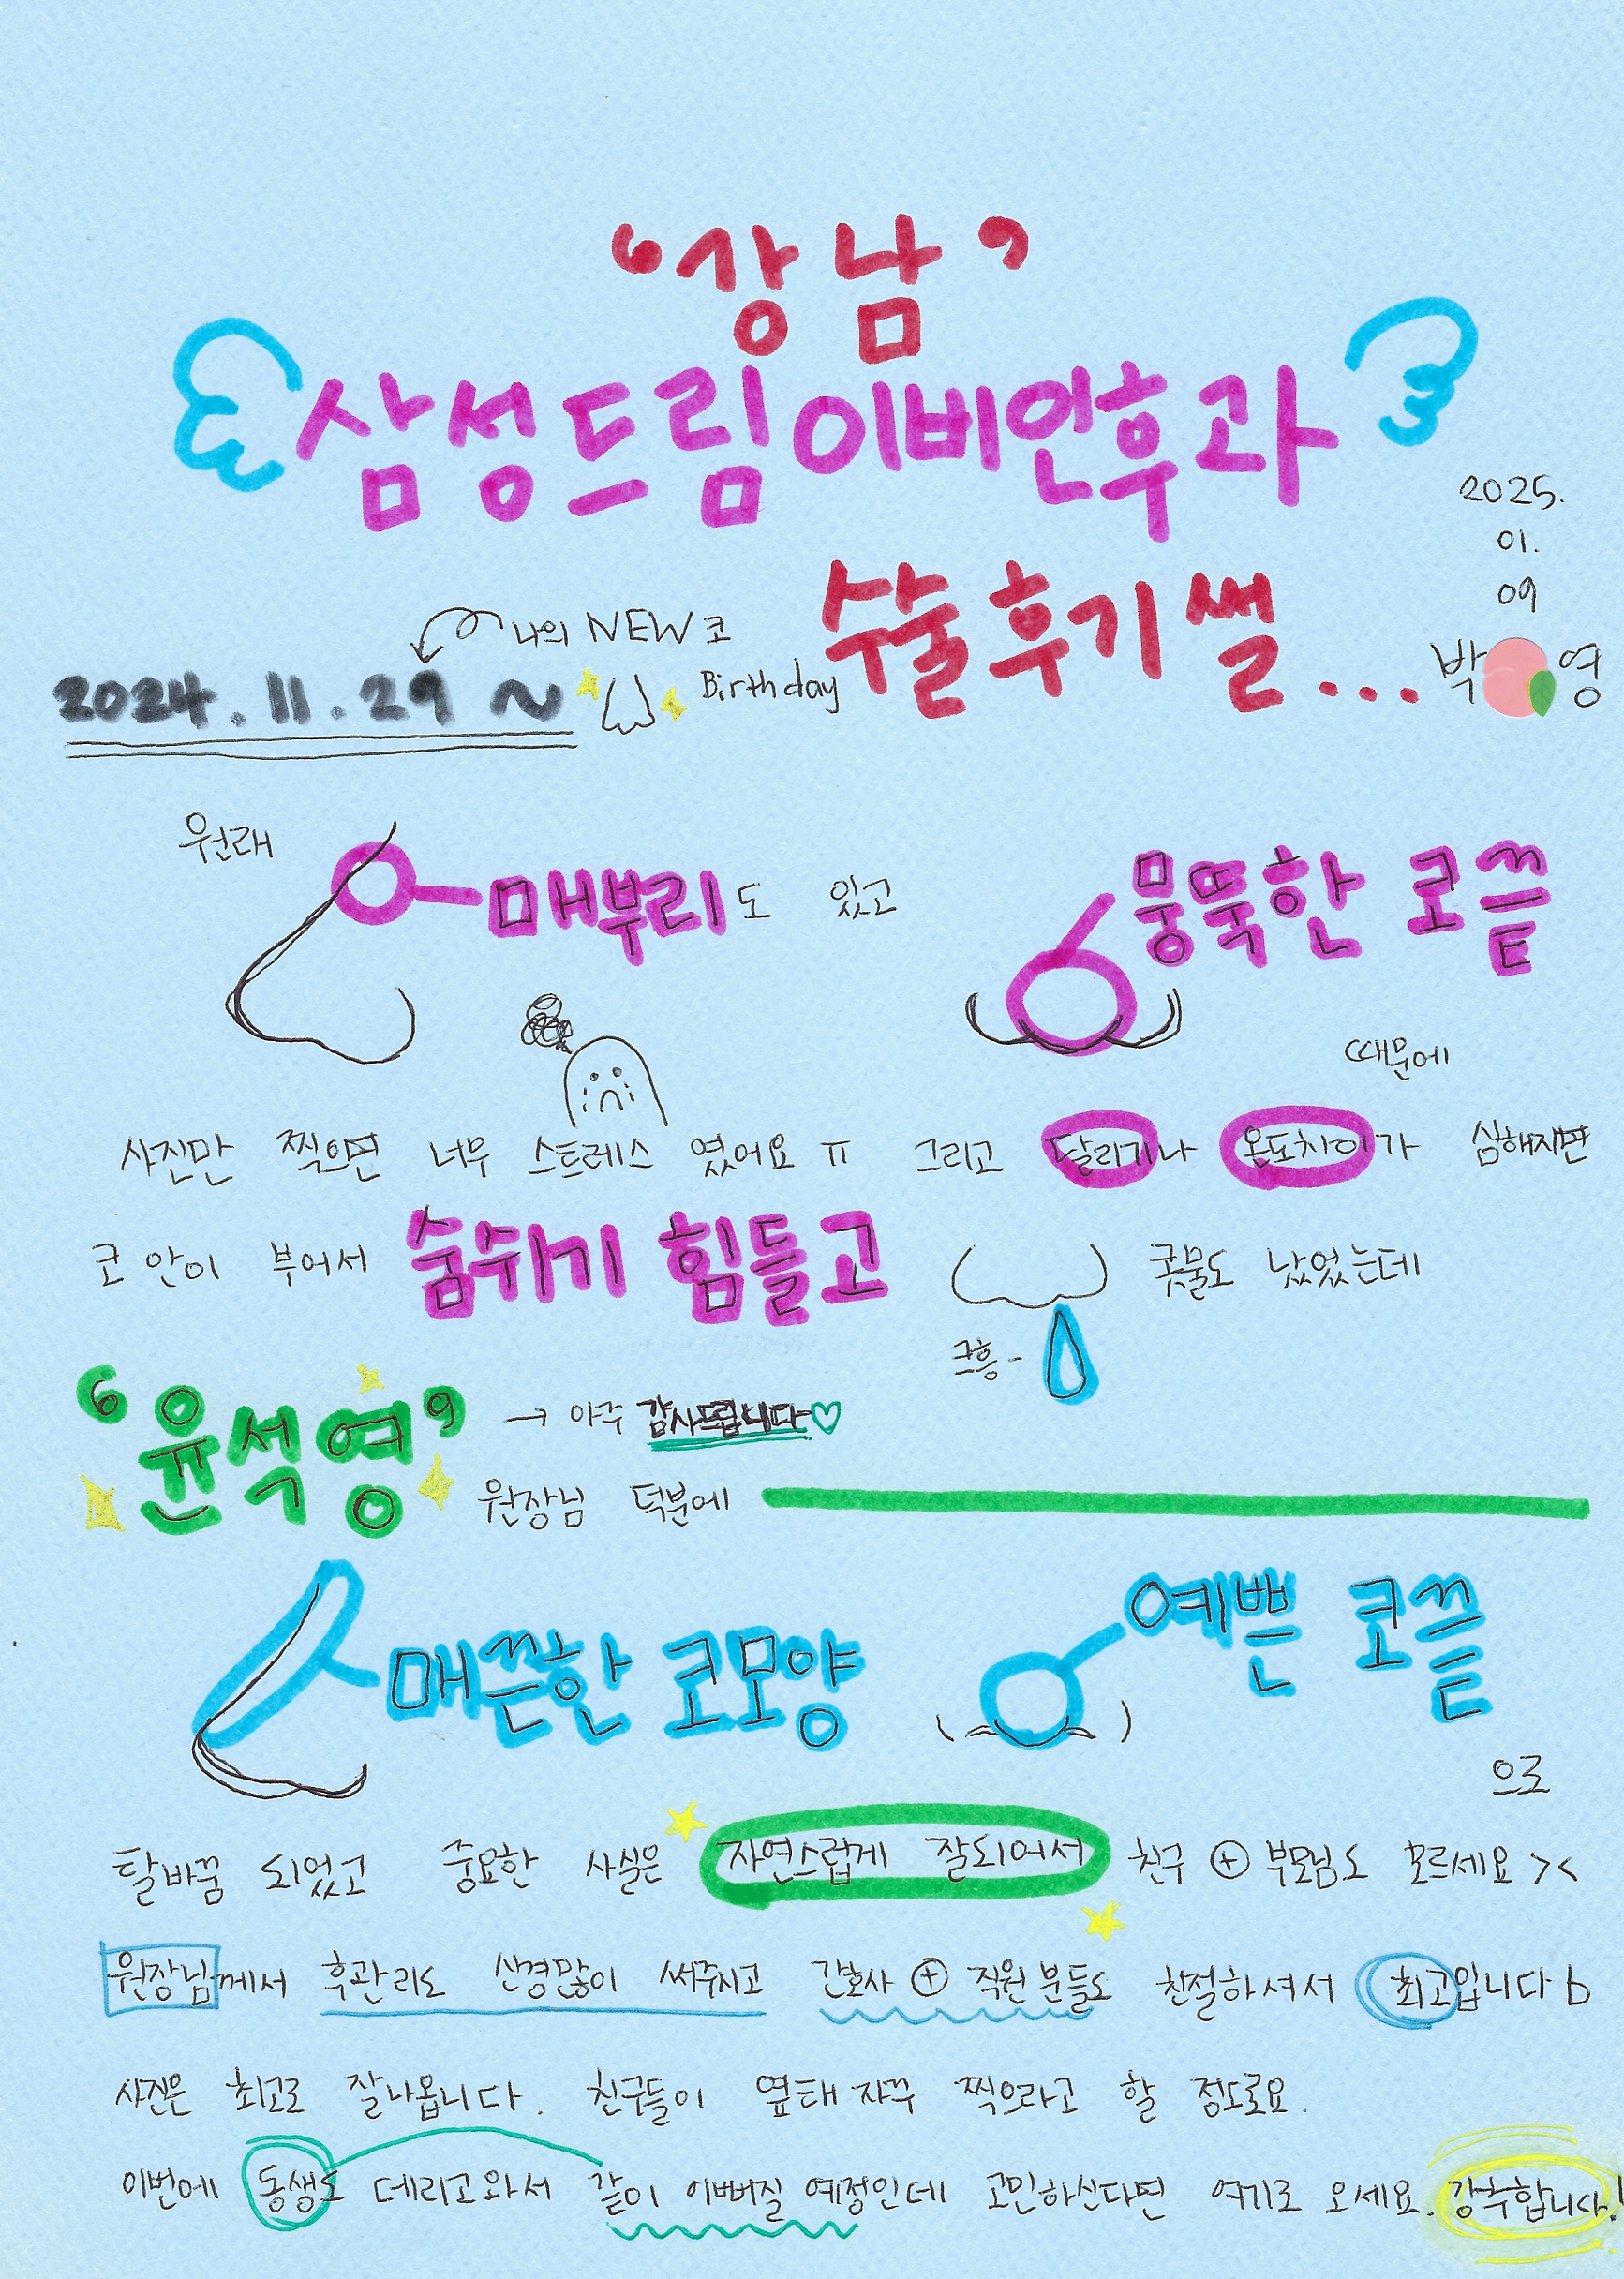 ‘강남’
삼성드림이비인후과
수술후기썰...
2025.
01.
09
박 영
나의 NEW 코
Birthday
2024.11.29 ~
원래
매부리도 있고
뭉뚝한 코끝
때문에
사진만 찍으면 너무 스트레스 였어요 ㅠ 그리고 달리기나 온도차이가 심해지면
코 안이 부어서 숨쉬기 힘들고 콧물도 났었는데
크흥-
‘윤석영’ → 아주 감사드립니다♡
원장님 덕분에
매끈한 코모양
예쁜 코끝
으로
탈바꿈 되었고 중요한 사실은 자연스럽게 잘되어서 친구 ⊕ 부모님도 모르세요 ><
원장님께서 후관리도 신경많이 써주시고 간호사 ⊕ 직원분들도 친절하셔서 최고입니다 b
사진은 최고로 잘나옵니다. 친구들이 옆태 자꾸 찍으라고 할 정도로요.
이번에 동생도 데리고와서 같이 이뻐질 예정인데 고민하신다면 여기로 오세요. 강추합니다!